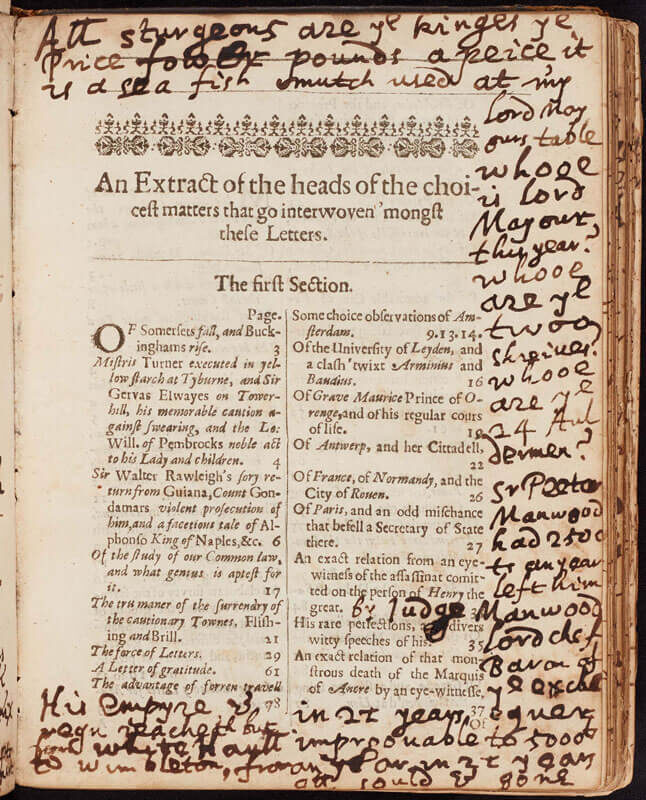 All sturgeons are ye kinges ye
Price fower pounds a peice it
is a sea fish smutch used at my
Lord May
ours table
whooe
is lord
Mayour
this year?
whooe
are ye
twoo
shreives?
whooe
are ye
24 Aul
dermen?
Sr Peeter
Manwood
had 2500
an year
left him
by Judge Manwood
Lord chef
Baron of
ye exche
quer
in 21 years,
improouable to 5000
an year in 21 years
all sould & gone
An Extract of the heads of the choi-
cest matters that go interwoven 'mongst
these Letters.
The first Section.
Page.
OF Somersets fall, and Buck-
inghams rise. 3
Mistris Turner executed in yel-
low starch at Tyburne, and Sir
Gervas Elwayes on Tower-
hill, his memorable caution a-
gainst swearing, and the Lo:
Will. of Pembrocks noble act
to his Lady and children. 4
Sir Walter Rawleigh's sory re-
turn from Guiana, Count Gon-
damars violent prosecution of
him, and a facetious tale of Al-
phonso King of Naples, &c. 6
Of the study of our Common law,
and what genius is aptest for
it. 17
The tru maner of the surrendry of
the cautionary Townes, Flish-
ing and Brill. 21
The force of Letters. 29
A Letter of gratitude. 61
The advantage of forren travell
78
Some choice observations of Am-
sterdam. 9.13.14.
Of the University of Leyden, and
a clash 'twixt Arminius and
Baudius. 16
Of Grave Maurice Prince of O-
renge, and of his regular cours
of life. 19
Of Antwerp, and her Cittadell,
22
Of France, of Normandy, and the
City of Rouen. 26
Of Paris, and an odd mischance
that befell a Secretary of State
there. 27
An exact relation from an eye-
witness of the assassinat comit-
ted on the person of Henry the
great.
His rare perfections, divers
witty speeches of his. 35
An exact relation of that mon-
strous death of the Marquis
of Ancre by an eye-witnesse,
37
Of
His Empyre &
reacheth but
from whitehaull
to wimbleton,